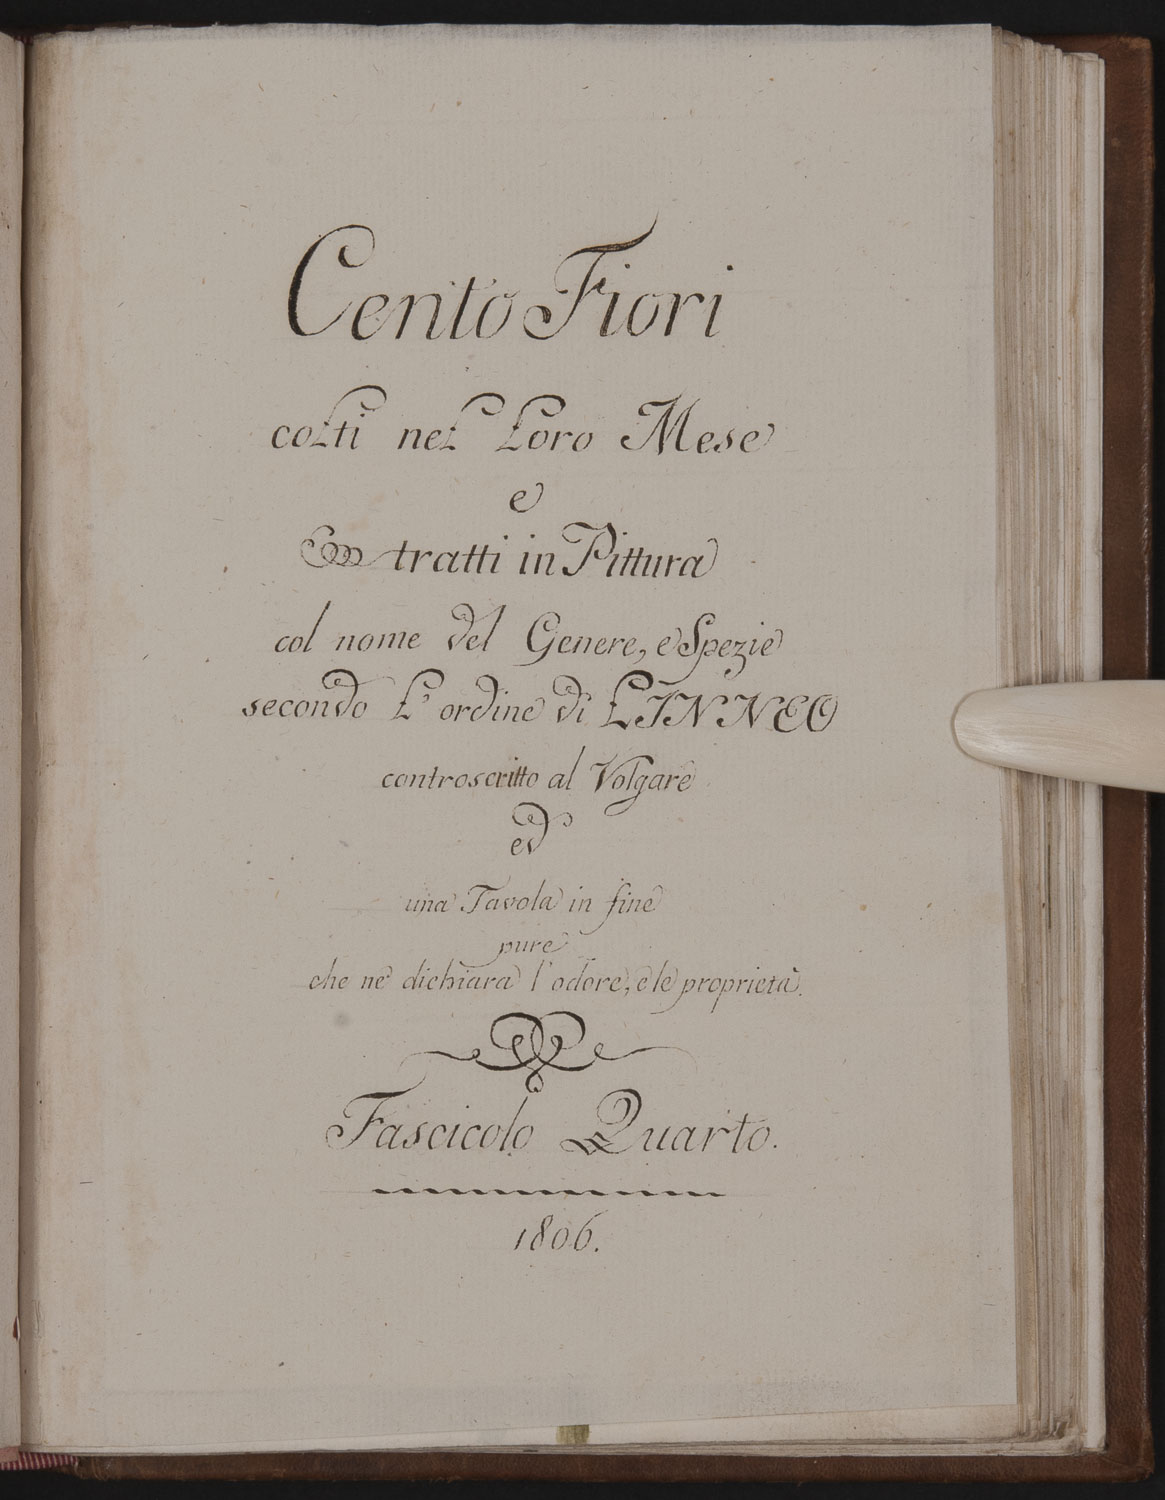 Cento Fiori
colti nel Loro Mese
e
tratti in Pittura
col nome del Genere, e Spezie
secondo L' ordine di LINNEO
controscritto al Volgare
ed
una Tavola in fine
pure
che ne dichiara l'odore, e le proprietà.
Fascicolo Quarto.
1806.